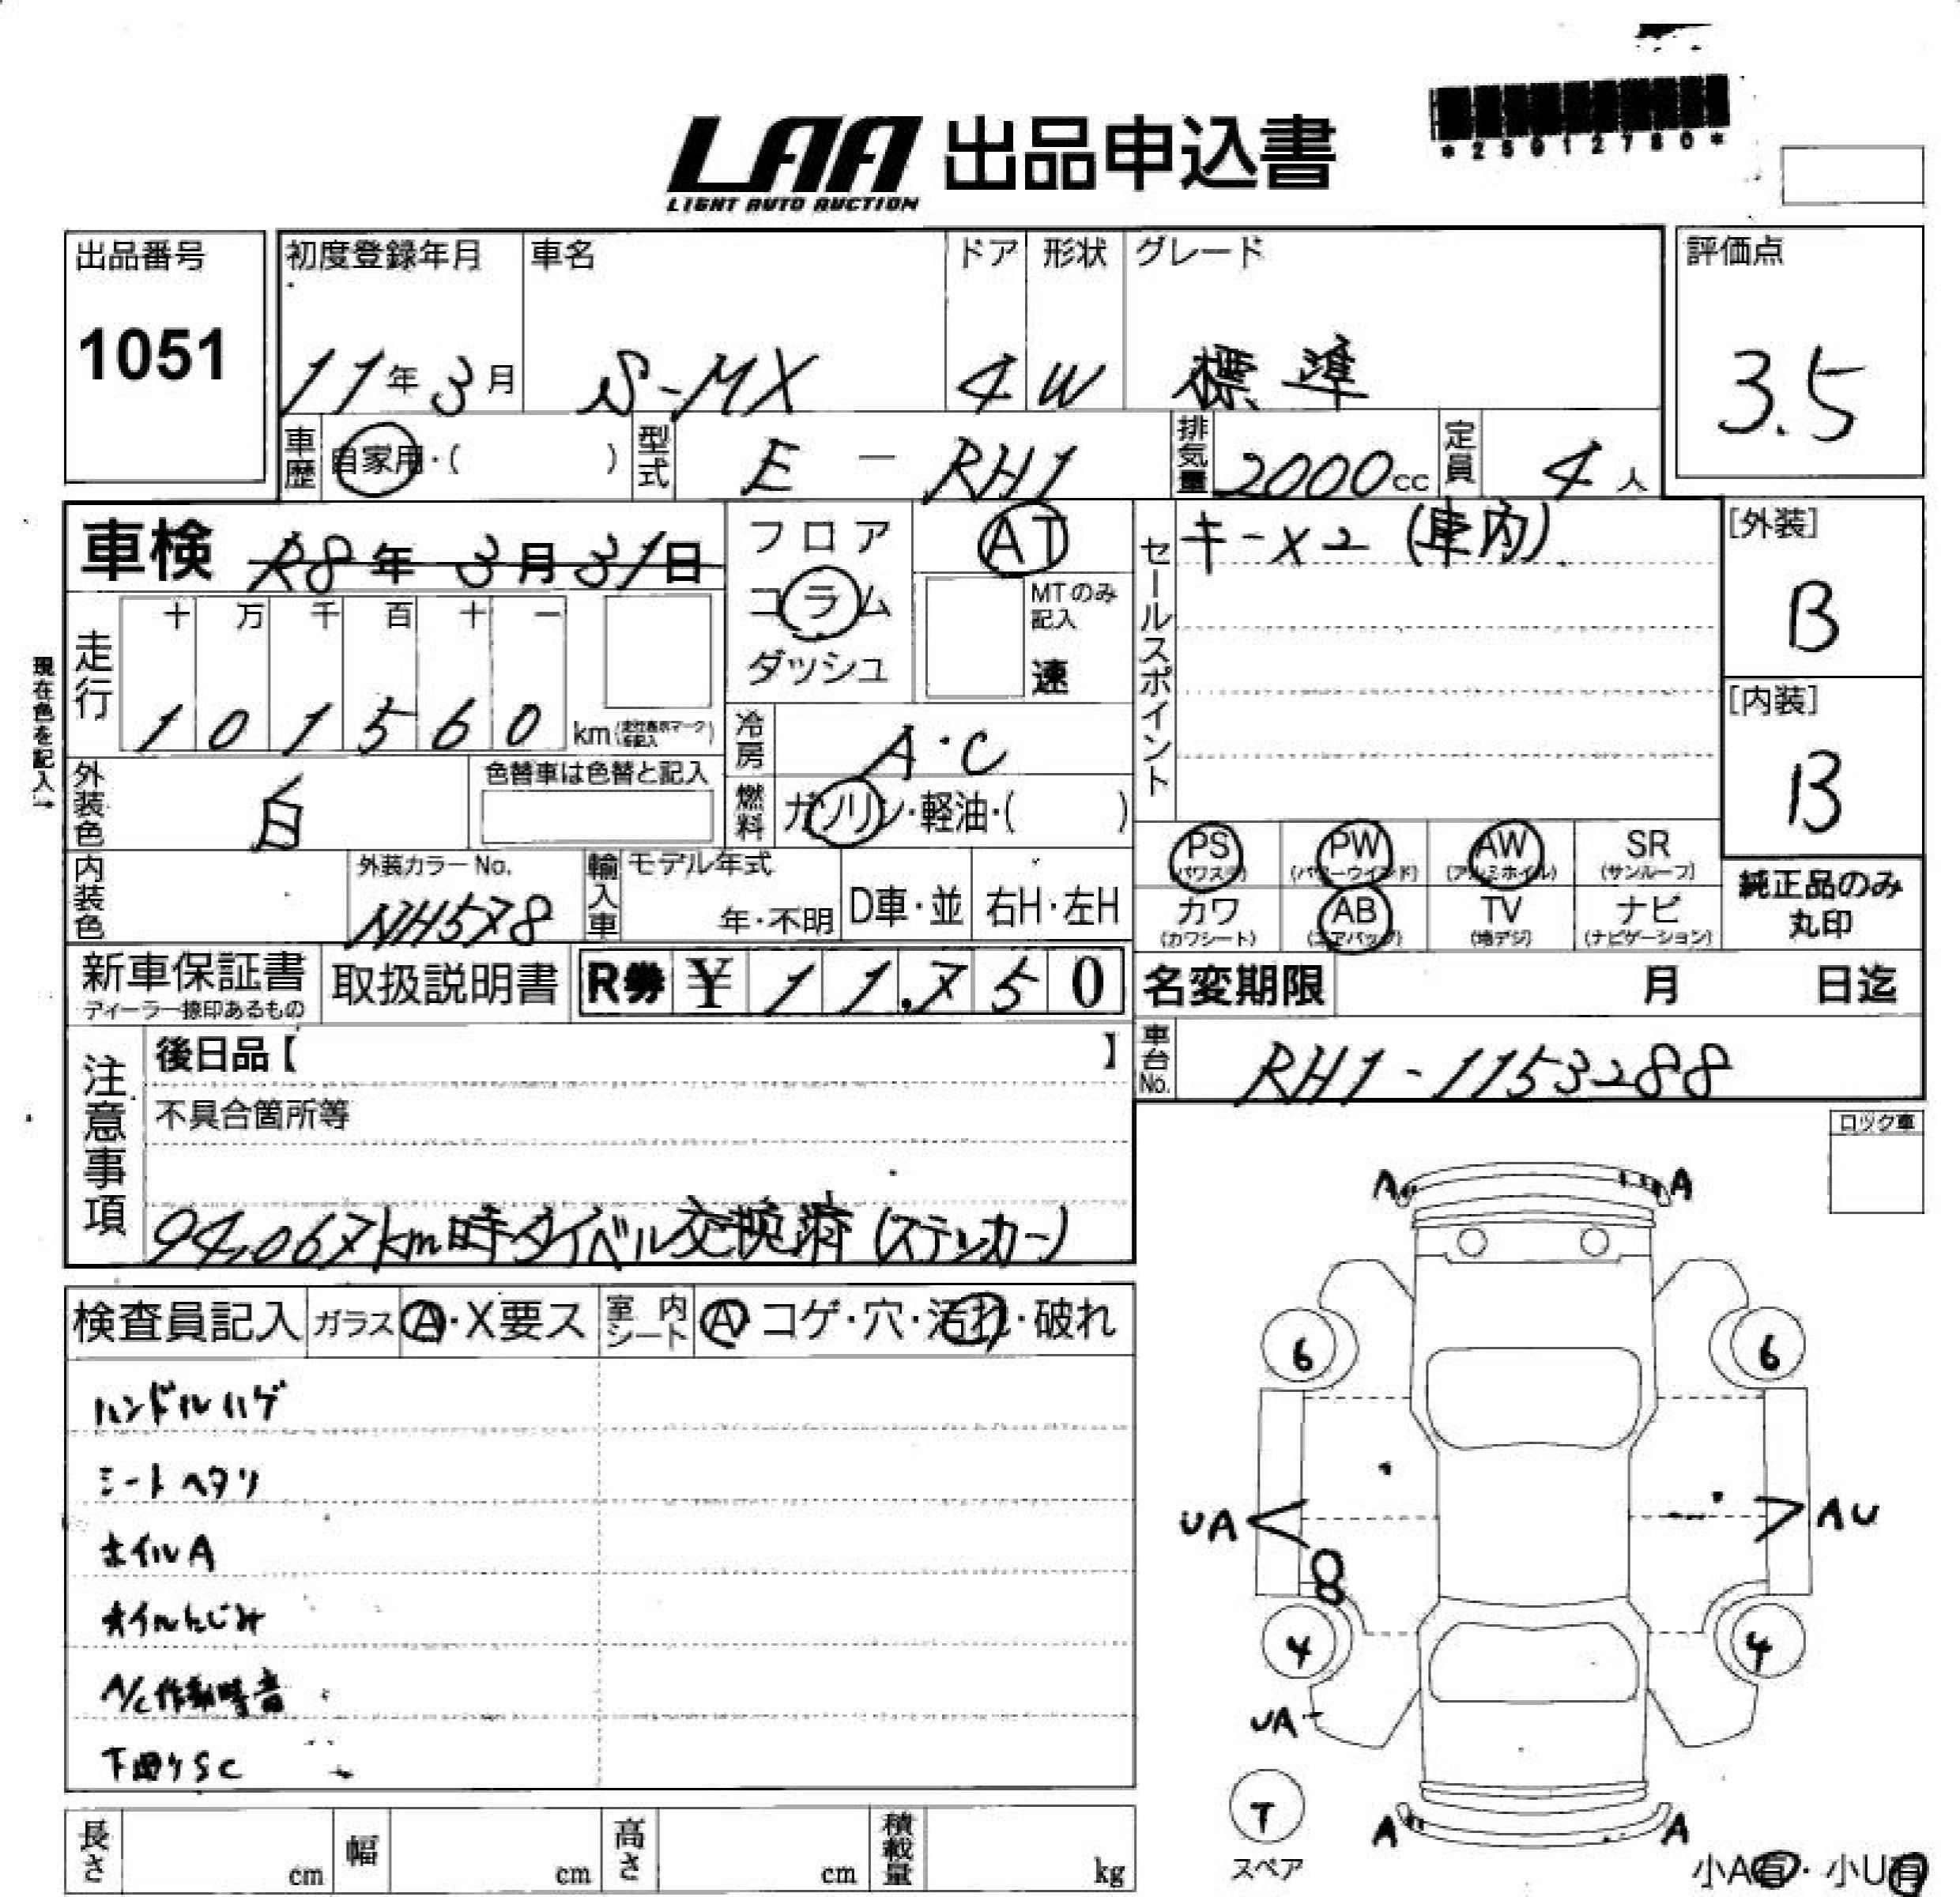 LAA 出品申込書
LIGHT AUTO AUCTION
*25012780*
出品番号
1051
初度登録年月
11年3月
車名
S-MX
ドア
4
形状
W
グレード
標準
評価点
3.5
車歴
自家用・( )
型式
E - RH1
排気量
2000cc
定員
4人
車検 R8年 3月31日
フロア
コラム
ダッシュ
AT
MTのみ記入
速
セールスポイント
キー×2 (車内)
[外装]
B
[内装]
B
現在色を記入→
走行
十 万 千 百 十 一
1 0 1 5 6 0 km
冷房
A・C
外装色
白
色替車は色替と記入
燃料
ガソリン・軽油・( )
PS
(パワステ)
PW
(パワーウインド)
AW
(アルミホイル)
SR
(サンルーフ)
内装色
外装カラーNo.
NH578
輸入車
モデル年式
年・不明
D車・並
右H・左H
カワ
(カワシート)
AB
(エアバッグ)
TV
(地デジ)
ナビ
(ナビゲーション)
純正品のみ
丸印
新車保証書
ディーラー捺印あるもの
取扱説明書
R券 ¥ 1 1,7 5 0
名変期限 月 日迄
注意事項
後日品【 】
不具合箇所等
94,067km時タイベル交換済(ステッカー)
車台No.
RH1-1153288
ロック車
検査員記入
ガラス
A・X要ス
室内シート
A コゲ・穴・汚れ・破れ
ハンドルハゲ
シートヘタリ
ホイルA
オイルにじみ
A/C作動時音
下回りSC
A A
6 6
UA AU
4 4
UA
T
スペア
A A
小A有・小U有
長さ cm
幅 cm
高さ cm
積載量 kg